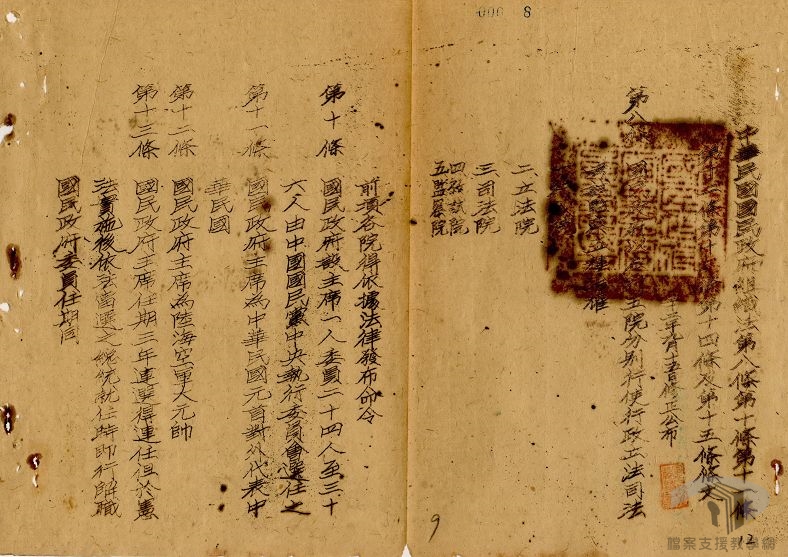 000 8
中華民國國民政府組織法第八條第十條第十一條
第十二條第十三條第十四條及第十五條條文
年九月十五日修正公布
第八條 國民政府以左列五院分別行使行政立法司法
二立法院
三司法院
四考試院
五監察院
前項各院得依據法律發布命令
第十條 國民政府設主席一人委員二十四人至三十
六人由中國國民黨中央執行委員會選任之
第十一條 國民政府主席為中華民國元首對外代表中
華民國
第十二條 國民政府主席為陸海空軍大元帥
第十三條 國民政府主席任期三年連選得連任但於憲
法實施後依法當選之總統就任時即行解職
國民政府委員任期同
9
12
檔案支援教學網